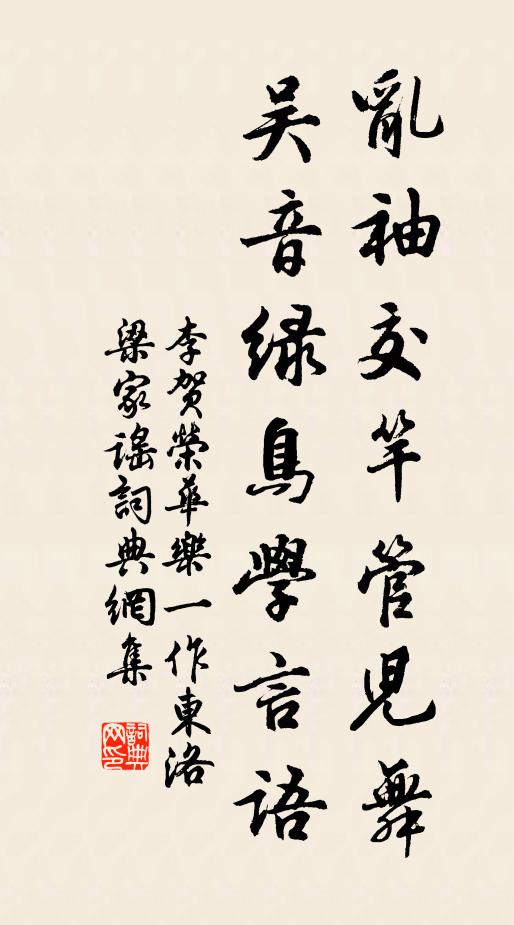 亂袖交竿管兒舞
吳音綠鳥學言語
李賀榮華樂一作東洛
梁家謠詞典網集
詞典網印